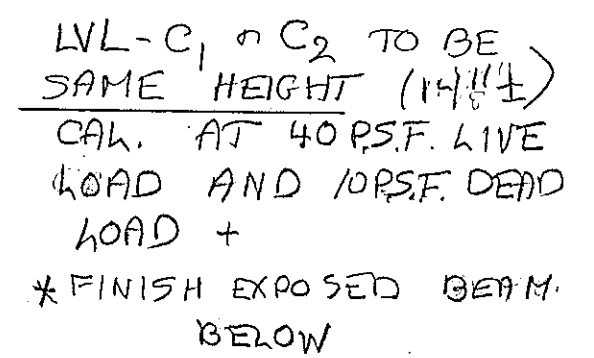 LVL-C1 & C2 TO BE
SAME HEIGHT
CAL. AT 40 P.S.F. LIVE
LOAD AND 10 P.S.F. DEAD
LOAD +
* FINISH EXPOSED BEAM.
BELOW